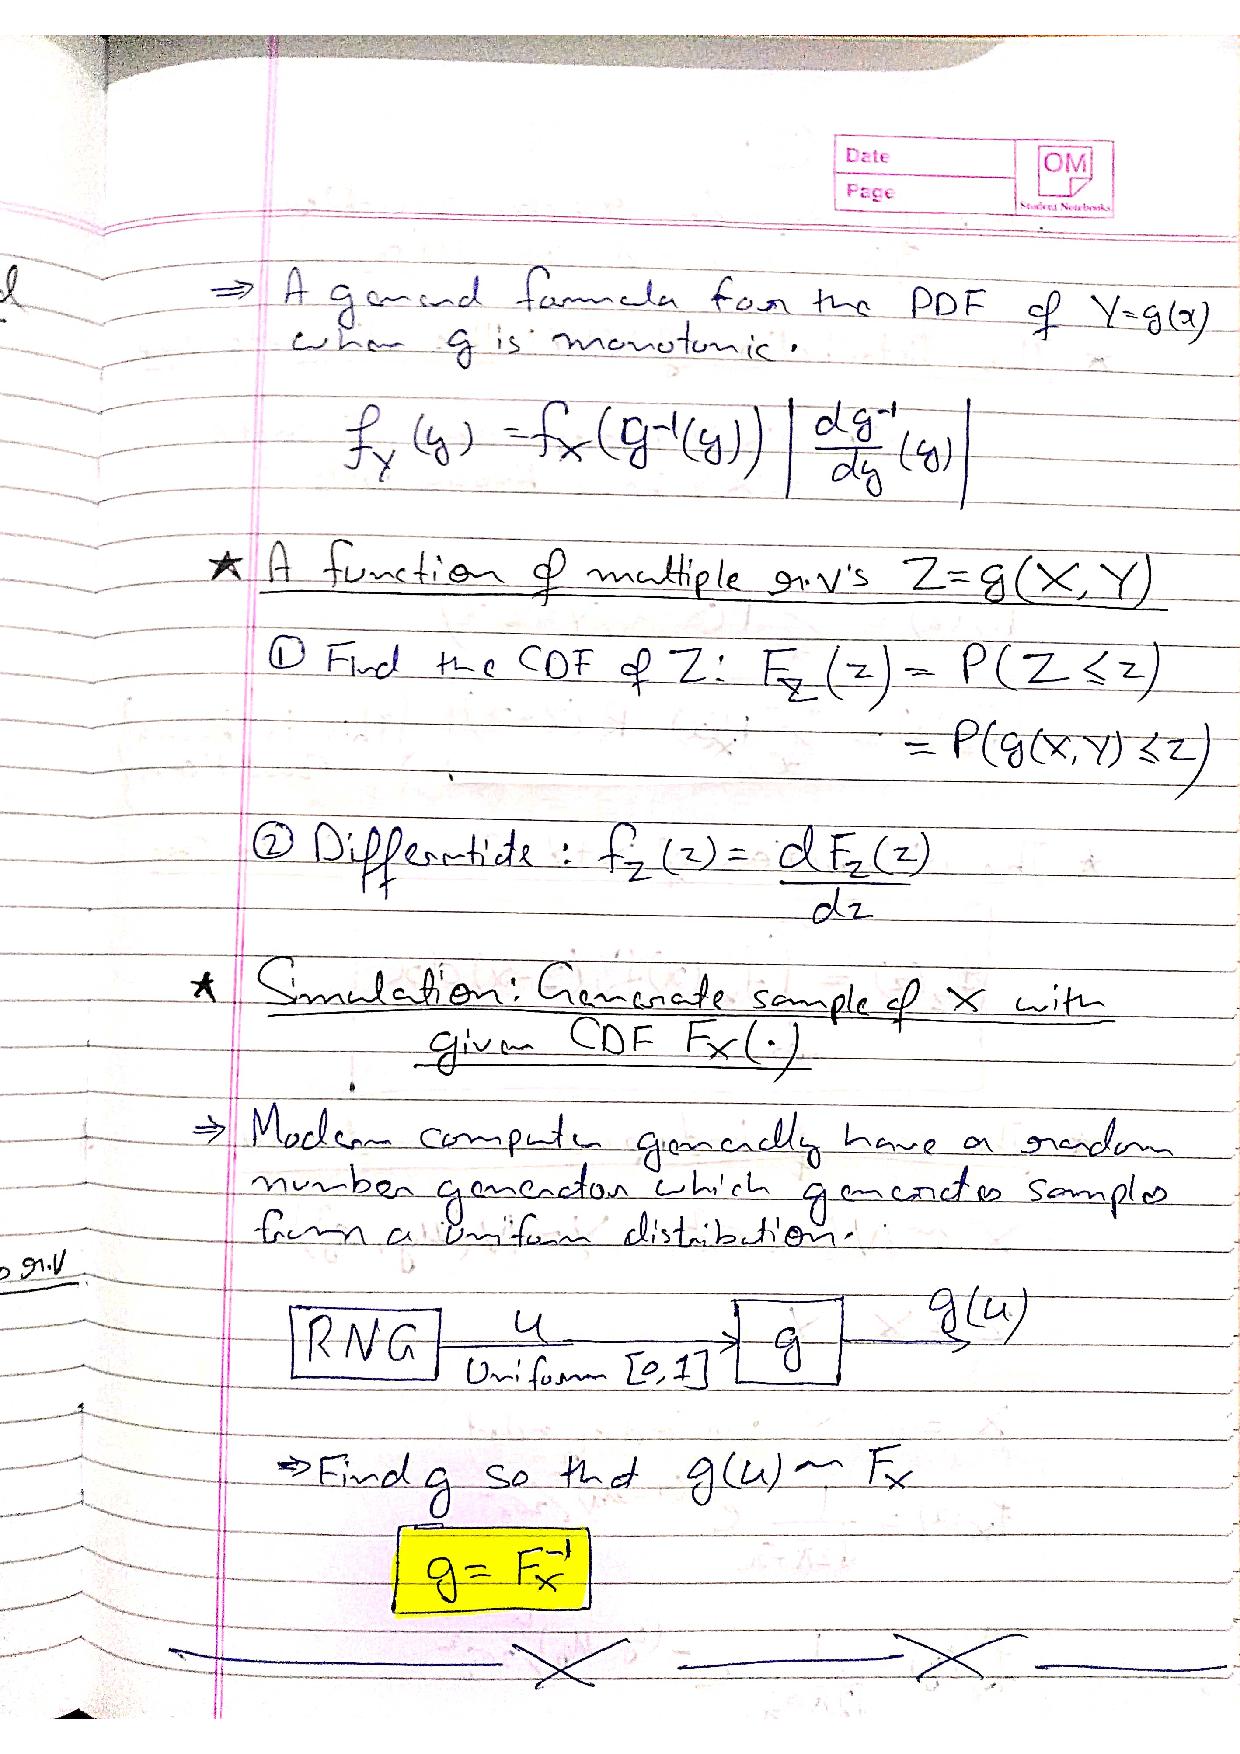 Date
Page
OM
Student Notebooks
⇒ A general formula for the PDF of Y=g(x)
when g is monotonic.
f_Y(y) = f_X(g⁻¹(y)) | dg⁻¹/dy (y) |
★ A function of multiple r.v's Z=g(X,Y)
① Find the CDF of Z: F_Z(z) = P(Z ≤ z)
= P(g(X,Y) ≤ z)
② Differentiate : f_Z(z) = dF_Z(z)/dz
★ Simulation: Generate sample of X with
given CDF F_X(·)
⇒ Modern computer generally have a random
number generator which generates samples
from a uniform distribution.
r.v
RNG u Uniform [0,1] g g(u)
⇒ Find g so that g(u) ~ F_X
g = F_X⁻¹